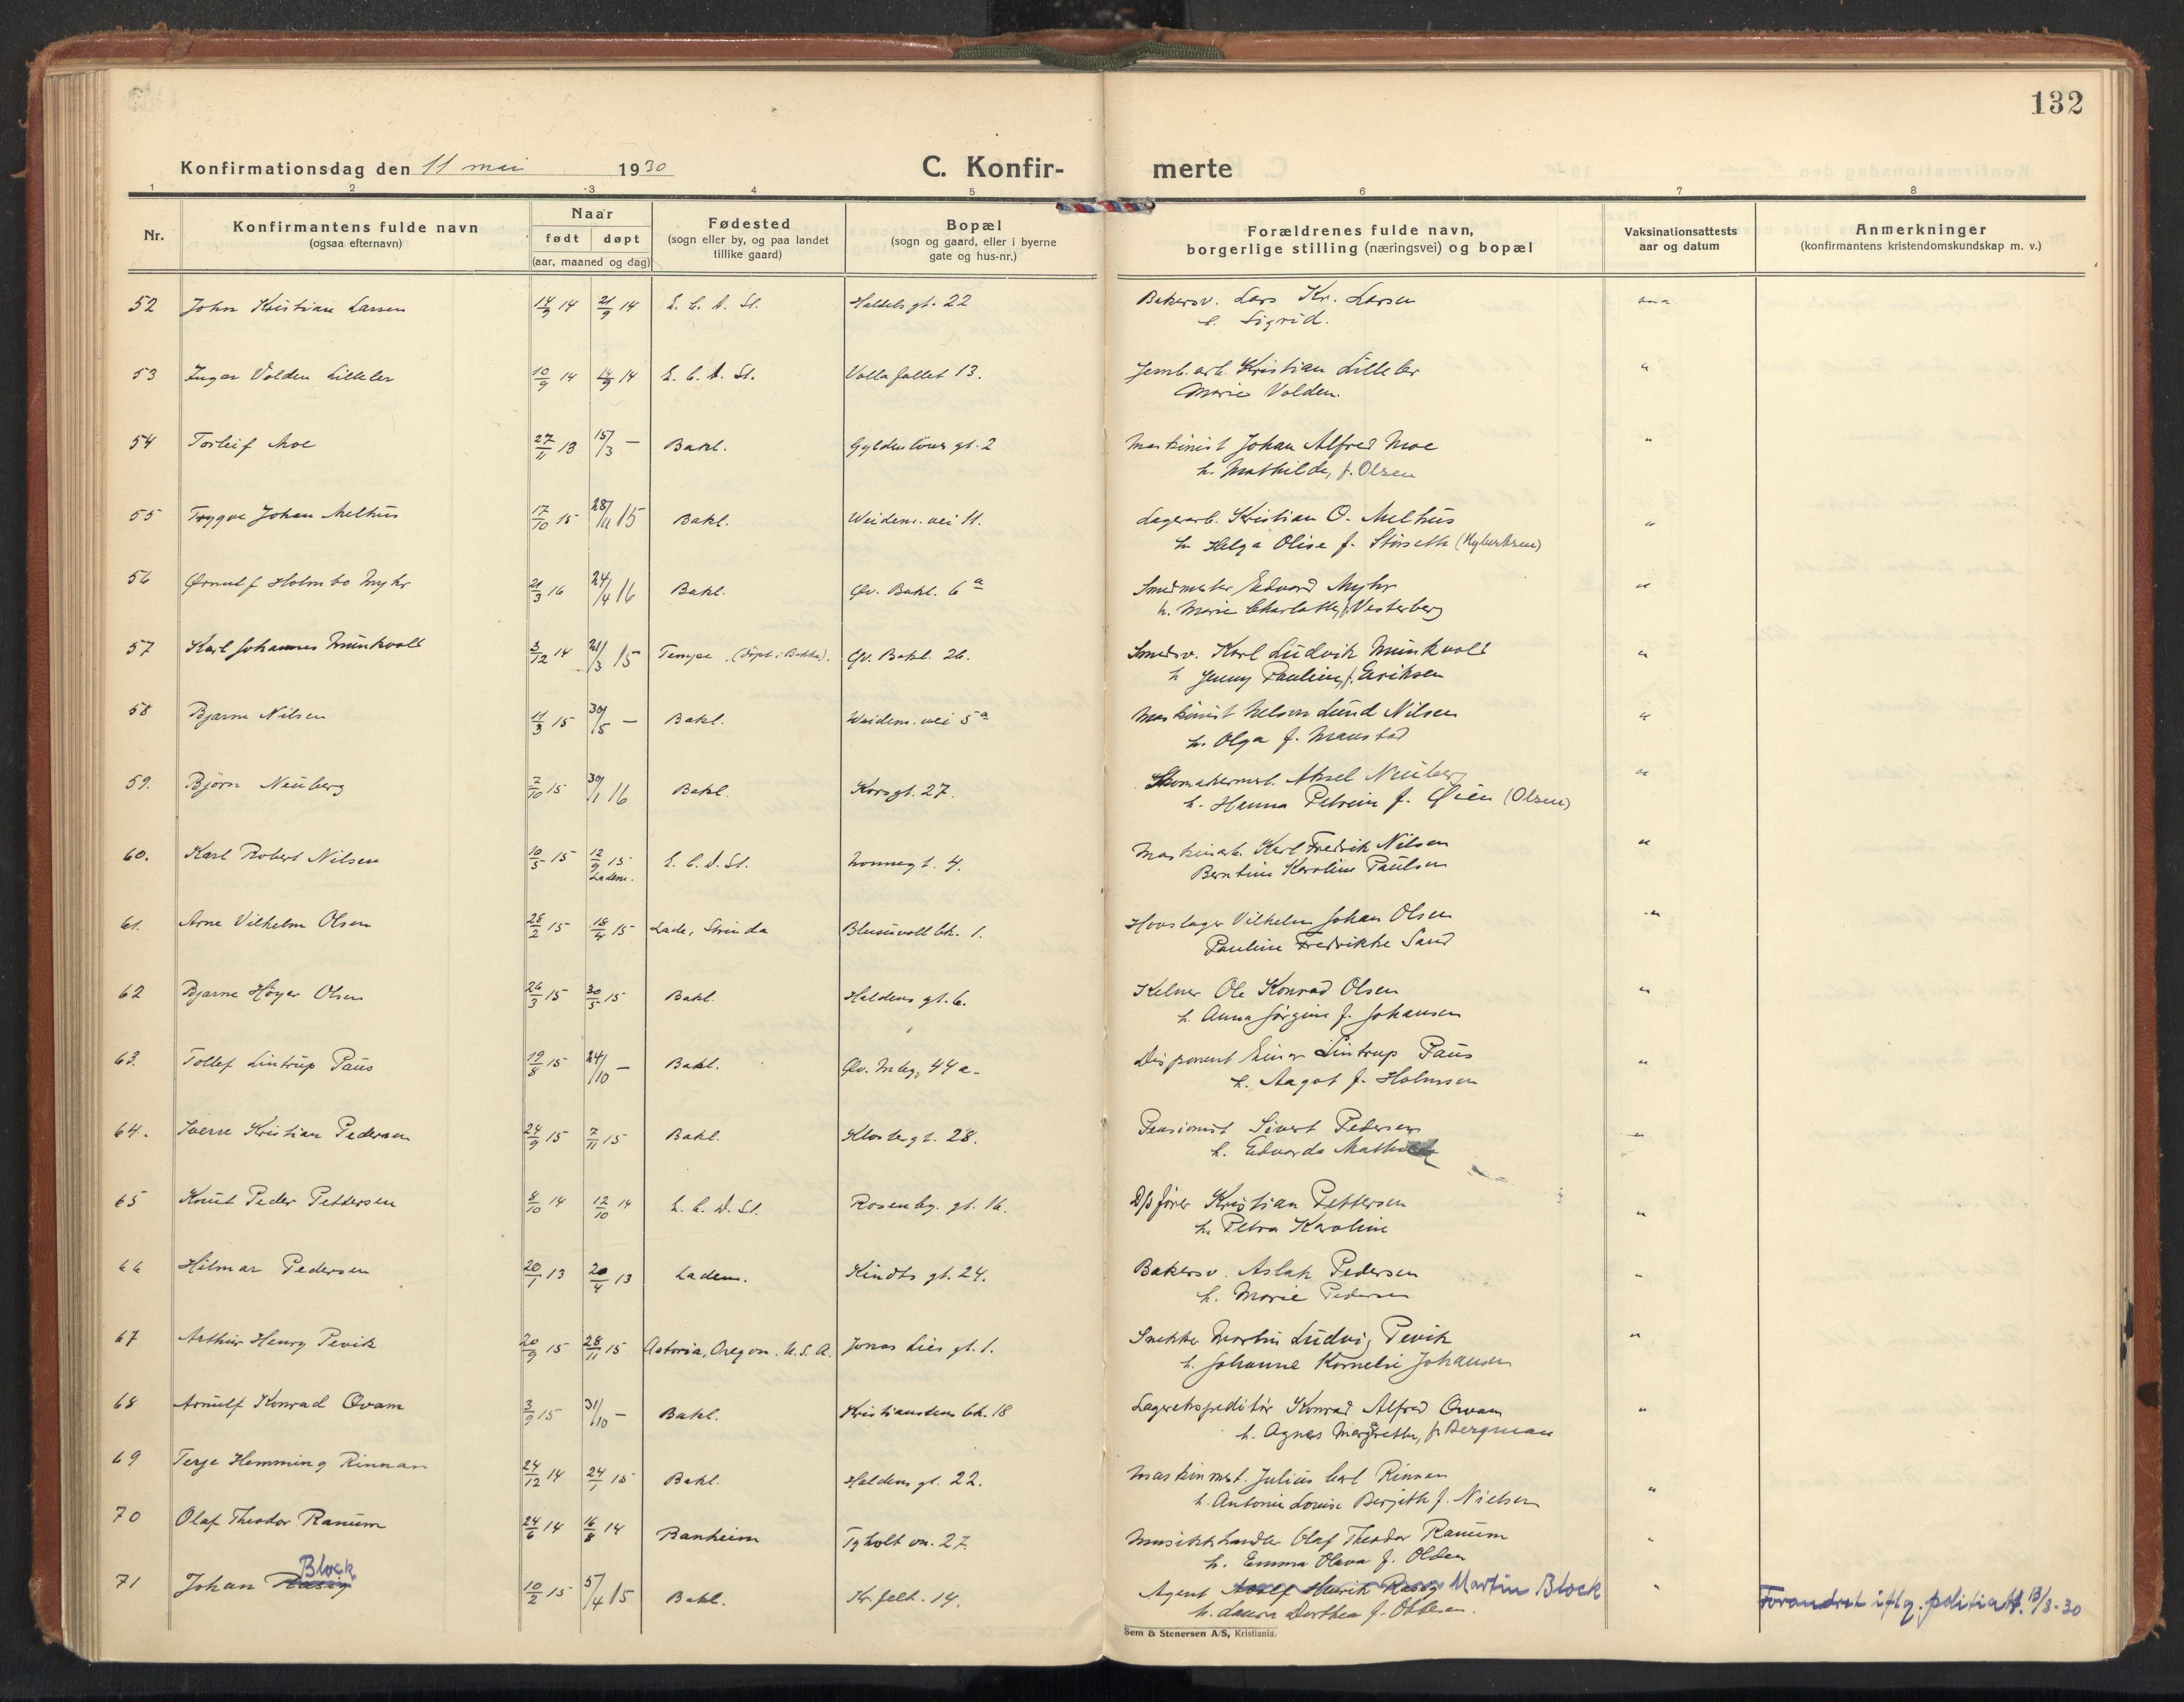 132
Konfirmationsdag den 11 mai 1930
C. Konfir- merte
1 2 3 4 5 6 7 8
Nr.
Konfirmantens fulde navn
(ogsaa efternavn)
Naar
født døpt
(aar, maaned og dag)
Fødested
(sogn eller by, og paa landet
tillike gaard)
Bopæl
(sogn og gaard, eller i byerne
gate og hus-nr.)
Forældrenes fulde navn,
borgerlige stilling (næringsvei) og bopæl
Vaksinationsattests
aar og datum
Anmerkninger
(konfirmantens kristendomskundskap m. v.)
52 John Kristian Larsen 14/9 14 21/9 14 E. C. D. St. gt. 22 Bakersv. Lars Kr. Larsen
h. Sigrid.
53 Ingar Volden Lilleler 10/9 14 14/9 14 E. C. D. St. Vollafallet 13. Jernb. arb. Kristian Lilleler "
Marie Volden.
54 Torleif Moe 27/11 13 15/3 — Bakl. Gyldenløves gt. 2 Maskinist Johan Alfred Moe "
h. Mathilde, f. Olsen
55 Trygve Johan Melhus 17/10 15 28/11 15 Bakl. Weidem. vei 11. Lagerarb. Kristian O. Melhus "
h. Helga Olise f. Størseth
56 Ørnulf Holmbo Myhr 21/3 16 24/4 16 Bakl. Øv. Bakl. 6 a Smedmester Edvard Myhr "
h. Marie Charlotte, f. Vesterberg
57 Karl Johannes Munkvold 3/12 14 21/3 15 Tempe. (døpt i Bakke). Øv. Bakl. 26. Smedsv. Karl Ludvik Munkvold "
h Jenny Pauline, f. Eriksen
58 Bjarne Nilsen 11/3 15 30/5 — Bakl. Weidem. vei 5 a Maskinist Nelson Lund Nilsen "
h. Olga f. Maustad
59. Bjørn Neuberg 7/10 15 30/1 16 Bakl. Korsgt. 27. Skomakermest. Aksel Neuberg "
h. Hanna Petrine f. Øien (Olsen)
60. Karl Robert Nilsen 10/5 15 12/9 15 E. C. D. St. Nonnegt. 4. Maskinarb. Karl Fredrik Nilsen "
Ladem.
Berntine Karoline Paulsen
61. Arne Vilhelm Olsen 28/2 15 18/4 15 Lade, Strinda Blusuvoll bk. 1. Hovslager Vilhelm Johan Olsen "
Pauline Fredrikke Sand
62 Bjarne Høyer Olsen 26/3 15 30/5 15 Bakl. Haldens gt. 6. Kelner Ole Konrad Olsen "
h. Anna Jørgine f. Johansen
63. Tollef Lintrup Paus 19/8 15 24/10 — Bakl. Øv. Mbg. 44 a. Disponent Einar Lintrup Paus "
h. Aagot f. Holmsen
64. Sverre Kristian Pedersen 24/9 15 7/11 15 Bakl. Klostergt. 28. Pensionist Sivert Pedersen "
h. Edvarda
65 Knut Peder Pettersen 8/10 14 12/10 14 E. C. D. St. Rosenbg. gt. 16. D/s fører Kristian Pettersen "
h. Petra Karoline
66 Hilmar Pedersen 20/1 13 20/4 13 Ladem. Kindts gt. 24. Bakersv. Aslak Pedersen "
h. Marie Pedersen
67 Arthur Henry Pevik 20/9 15 28/11 15 Astoria, Oregon. U.S.A. Jonas Lies gt. 1. Snekker Martin Ludvig Pevik "
h. Johanne Kornelie Johansen
68 Arnulf Konrad Qvam 3/9 15 31/10 — Bakl. Kristianstens bk. 18 Lagerekspeditør Konrad Alfred Qvam "
h. Agnes Margrethe, f. Bergman
69 Terje Hemming Rinnan 24/12 14 24/1 15 Bakl. Haldens gt. 22. Maskinmst. Julius Carl Rinnan "
h. Antonie Louise Bergith f. Nielsen
70 Olaf Theodor Ranum 24/6 14 16/8 14 Banheim Tyholt vn. 27. Musikkhandler Olaf Theodor Ranum "
h. Emma Olava f. Olden
Block
71 Johan Rasig 10/2 15 5/4 15 Bakl. Kr. felt. 14. Agent Adolf Henrik Rasig Martin Block " Forandret iflg. politiatt. 13/3-30
h. Laura Dorthea f. Ottesen.
Sem & Stenersen A/S, Kristiania.